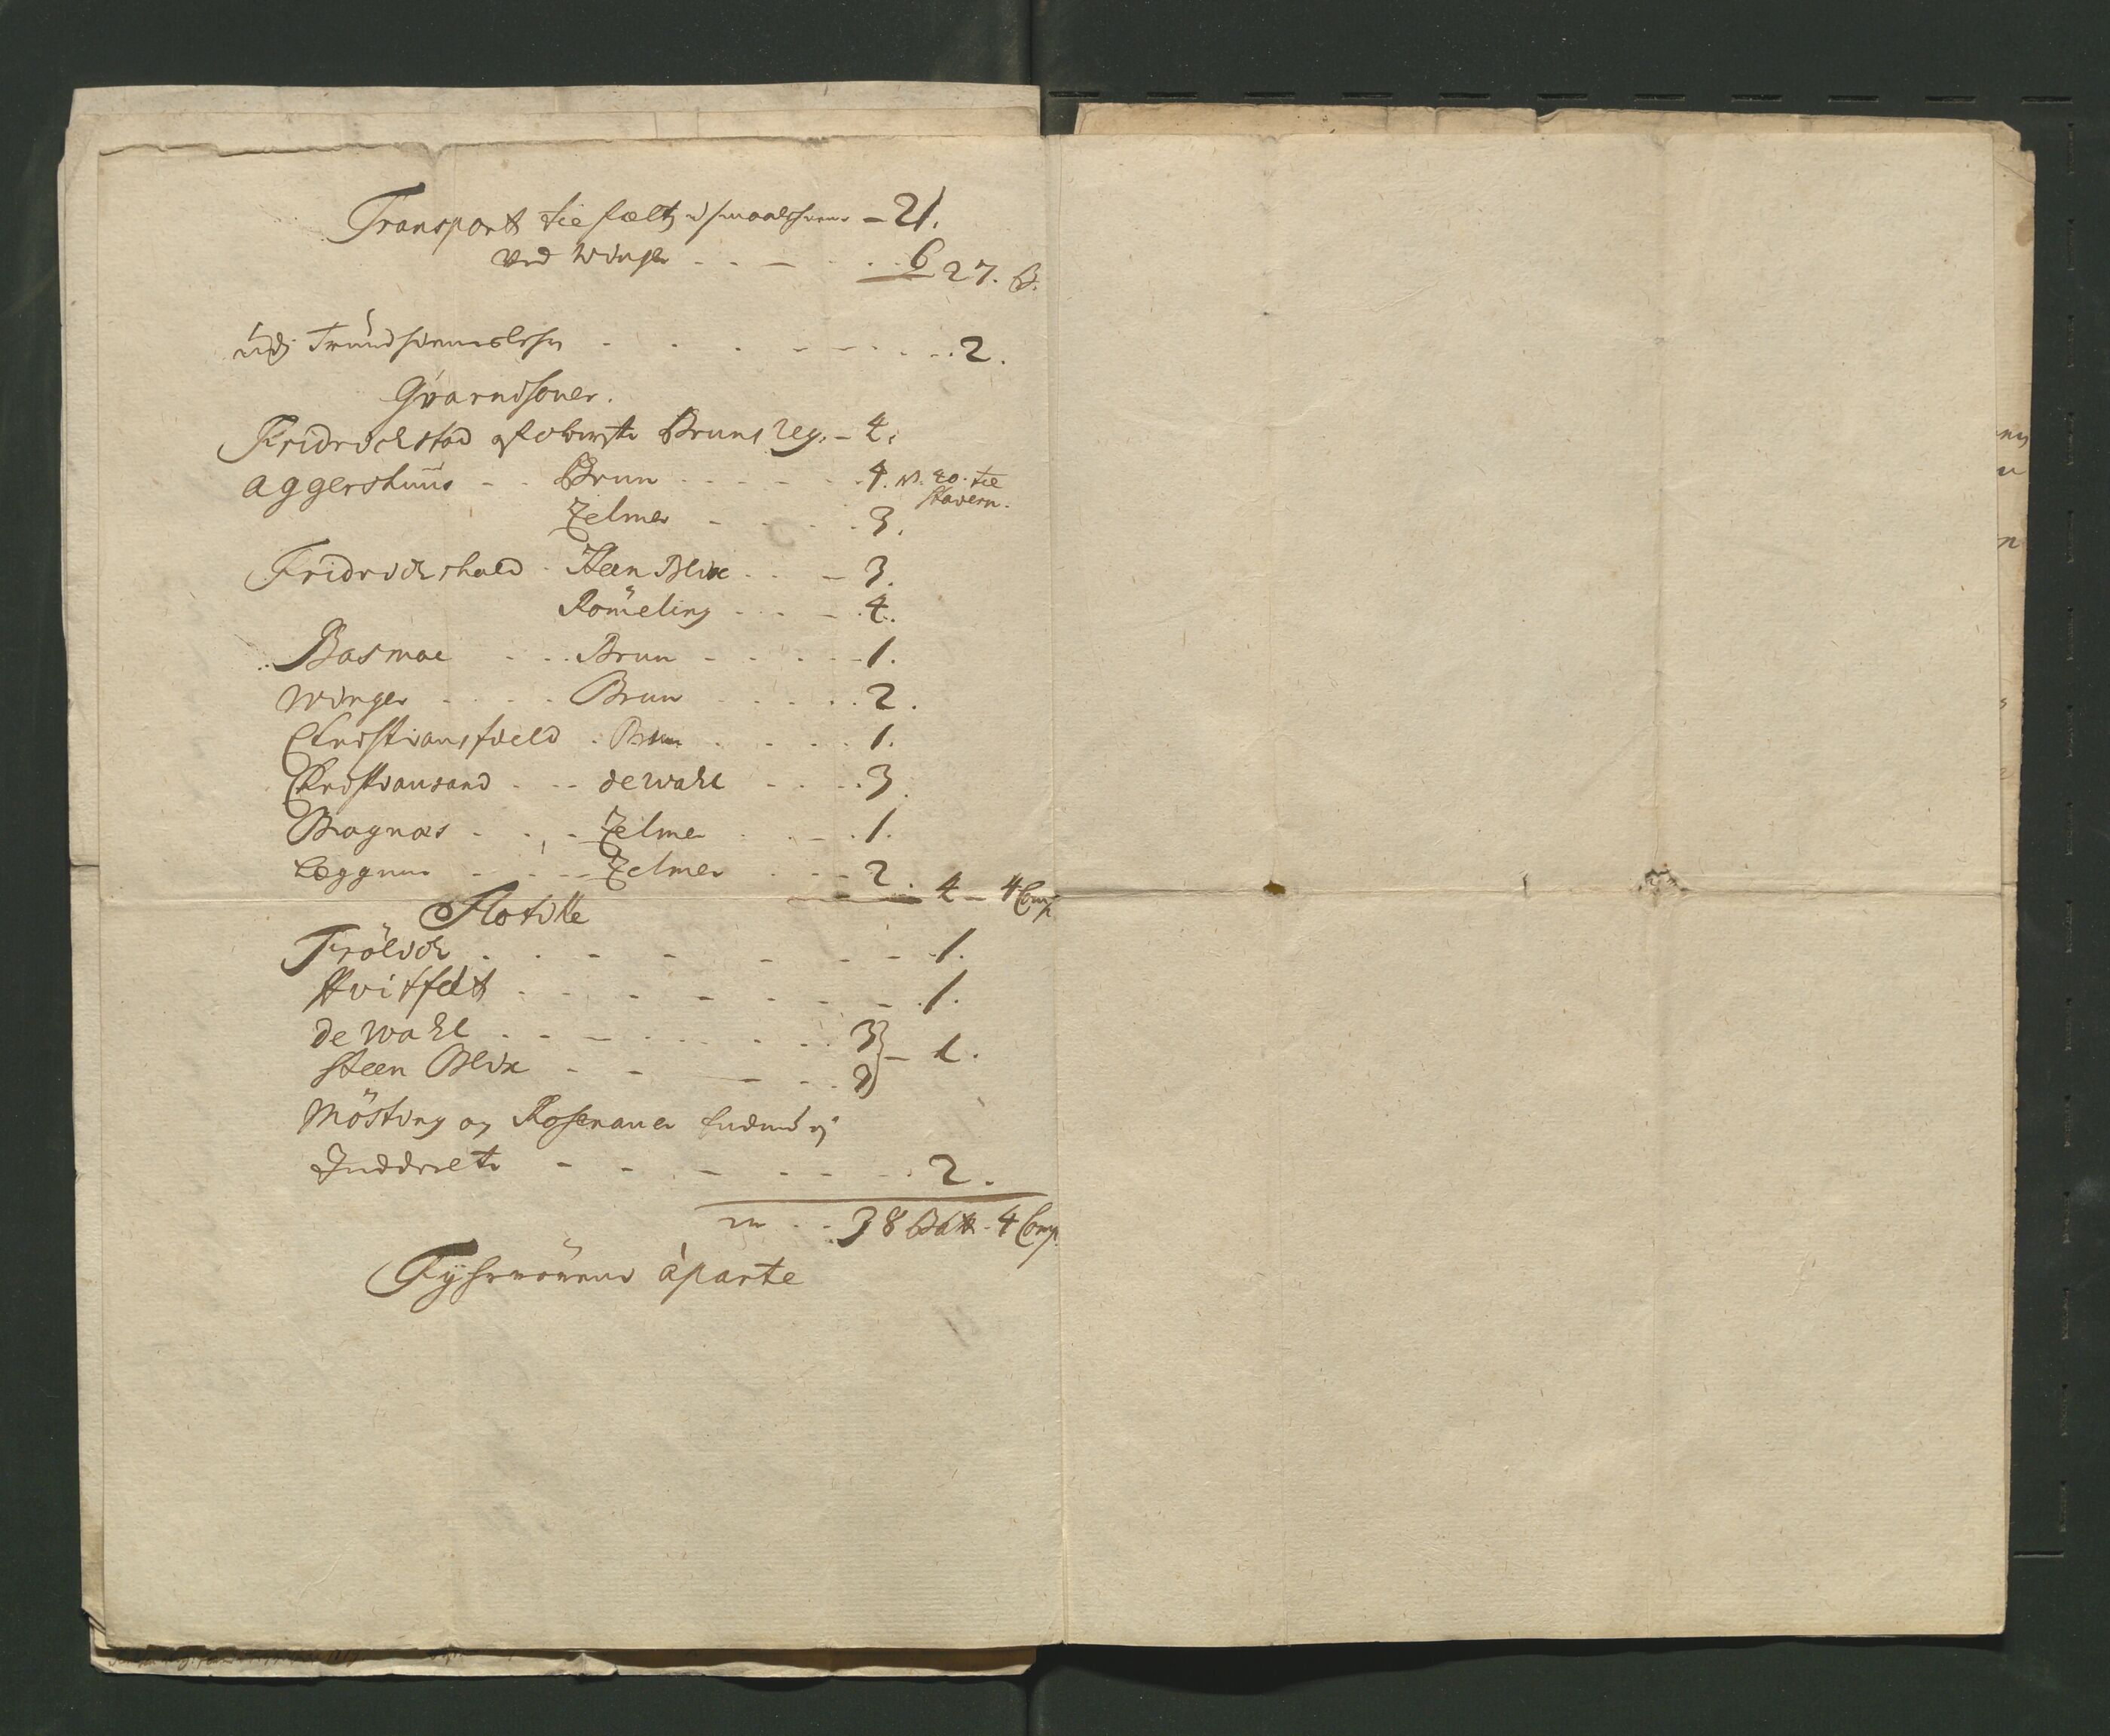 Transport til feltz i smaalehnene – 21.
ved Winger . . . . 6 27. B.
udj Trundhiemslehn . . . . 2.
Gvarnisoner.
Fridrichstad af oberste Bruns reg. – 4.
Aggershuus – . Brun . . . . 4. N. 20. til
Stavern.
Zelmer – . . . 3.
Fridrichshald . Steen Blixe . . – 3.
Römeling . . . – 4.
Basmoe . . . Brun – . . . – 1.
Winger . . . . Brun . . . . 2.
Christiansfield . Brun . . . . 1.
Christiansand . . – de Wahl – . . . 3.
Bragnæs . . . – Zelmer . . – . 1.
Læggene – . – – Zelmer . . – 2. 4 – 4 Comp.
Flotille
Frölich . . . – – – – – 1.
Hvitfelt . . . – – – – . 1.
de Wahl . . . – . . . . 3 } – 1.
Steen Blix – – – . . 3
Mösting og Rosenauer
Inddeelte – – – – – . . 2.
38 Batt. 4 Comp.
Fyhrrörene àparte